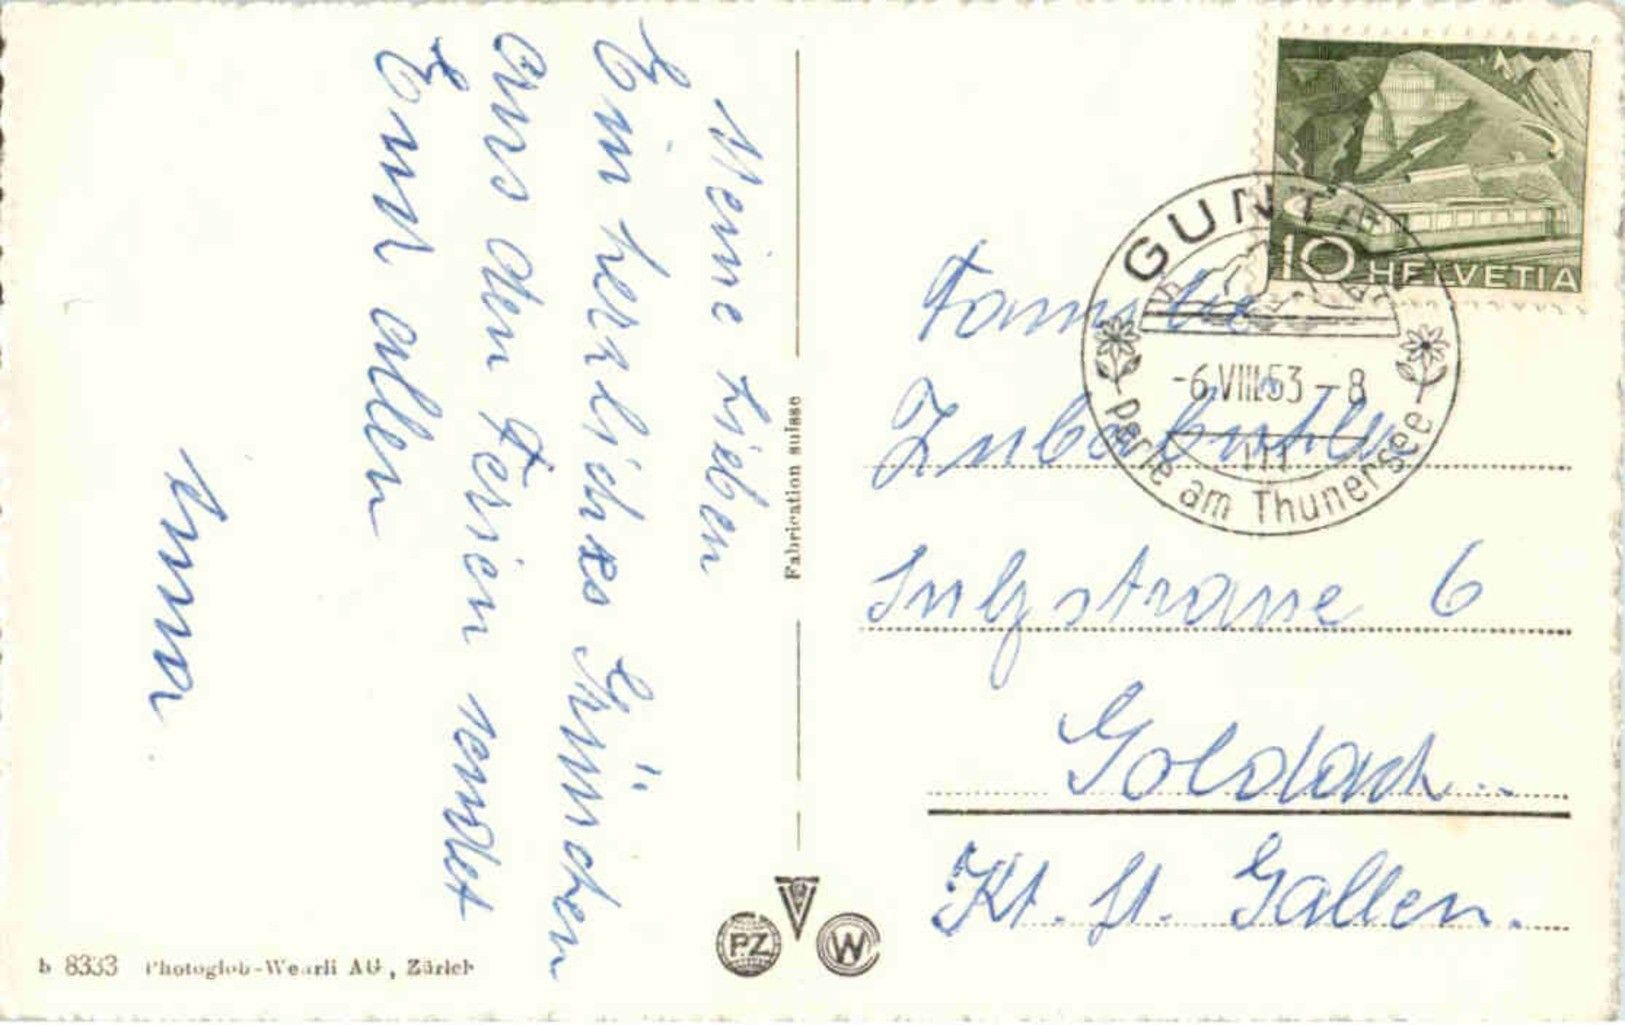 Meine Lieben
Ein herzliches Grüsschen
aus den Ferien sendet
Euch allen
Anna
Fabrication suisse
10 HELVETIA
GUNTEN
-6.VIII.53-8
Perle am Thunersee
Familie
Sulzstrasse 6
Goldach
Kt. St. Gallen.
PZ
W
b 8333 Photoglob-Wehrli AG, Zürich